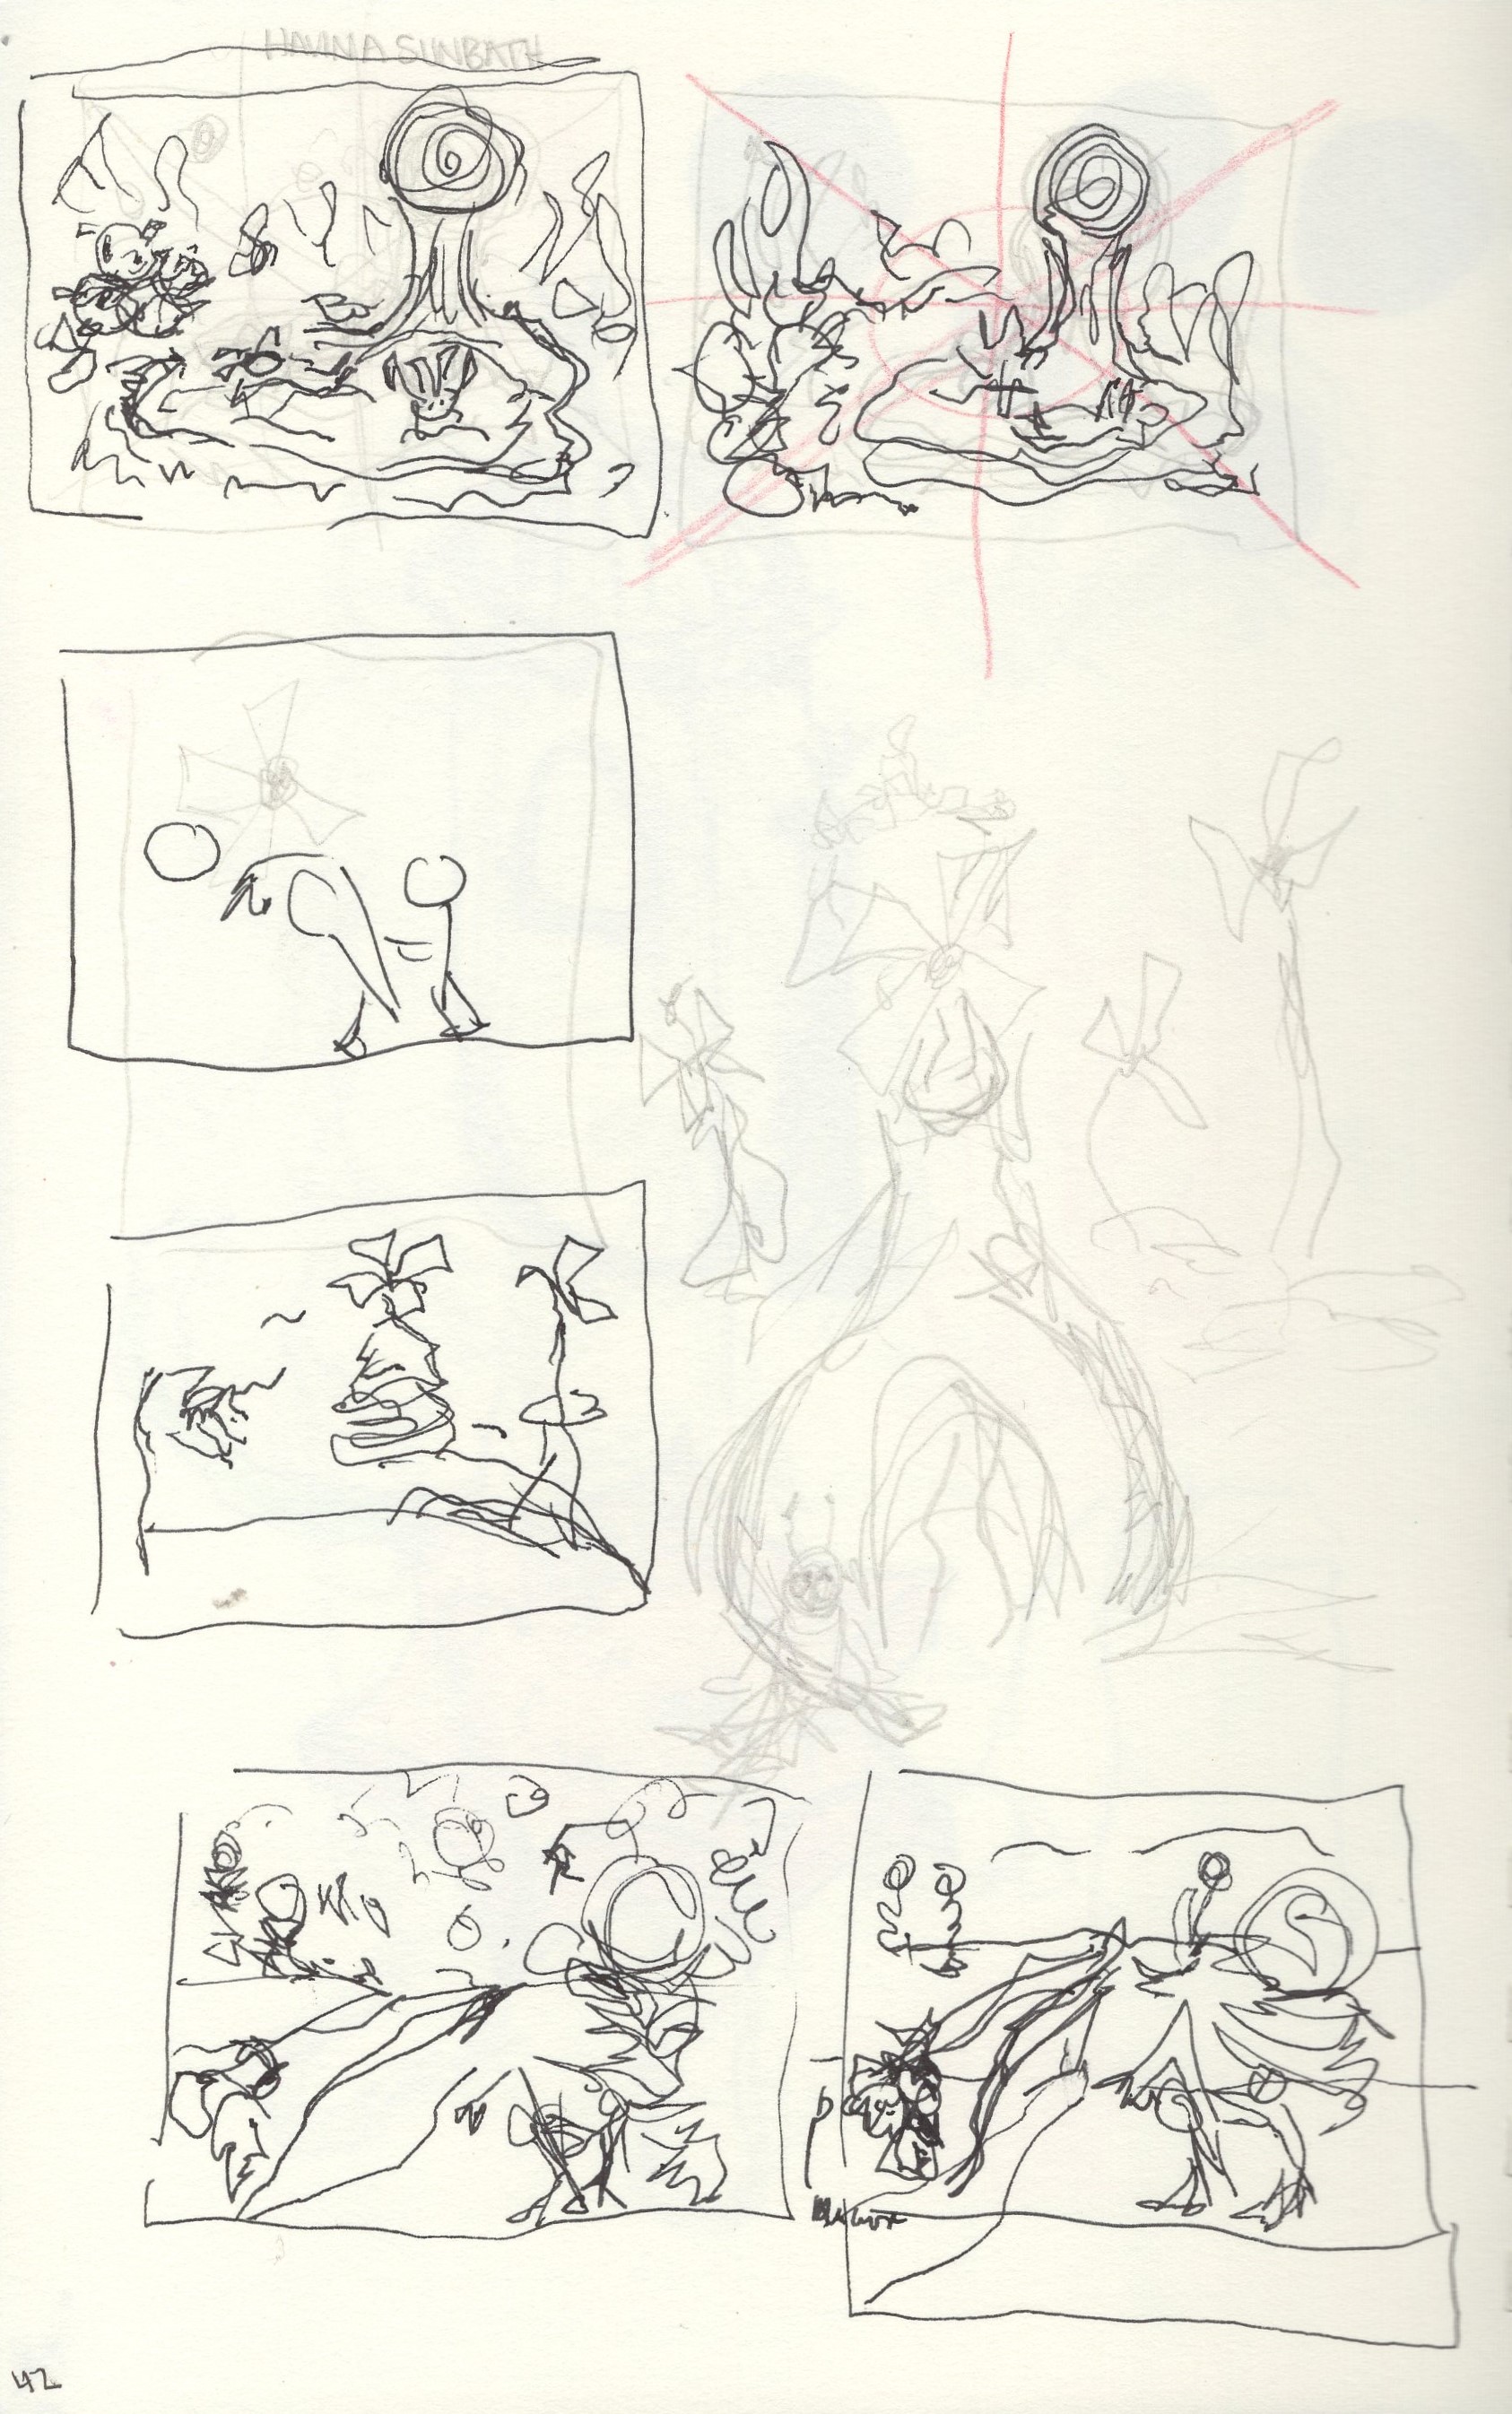 HAVIN A SUNBATH
42